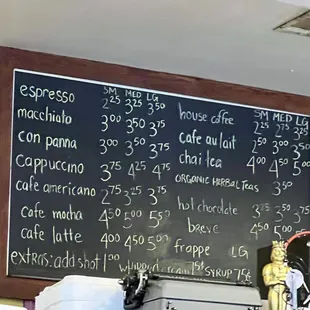 SM MED LG
espresso 2²⁵ 3²⁵ 3⁵⁰
macchiato 3⁰⁰ 3⁵⁰ 3⁷⁵
con panna 3⁰⁰ 3⁵⁰ 3⁷⁵
Cappuccino 3⁷⁵ 4²⁵ 4⁷⁵
cafe americano 2⁷⁵ 3²⁵ 3⁷⁵
Cafe mocha 4⁵⁰ 5⁰⁰ 5⁵⁰
Cafe latte 4⁰⁰ 4⁵⁰ 5⁰⁰
extras: add shot 1⁰⁰ SYRUP 75¢
SM MED LG
house coffee 2²⁵ 2⁷⁵ 3²⁵
Cafe au lait 2⁵⁰ 3⁰⁰ 3⁵⁰
chai tea 4⁰⁰ 4⁵⁰ 5⁰⁰
ORGANIC HERBAL TEAS 3⁵⁰
hot chocolate
breve 4⁵⁰
frappe LG